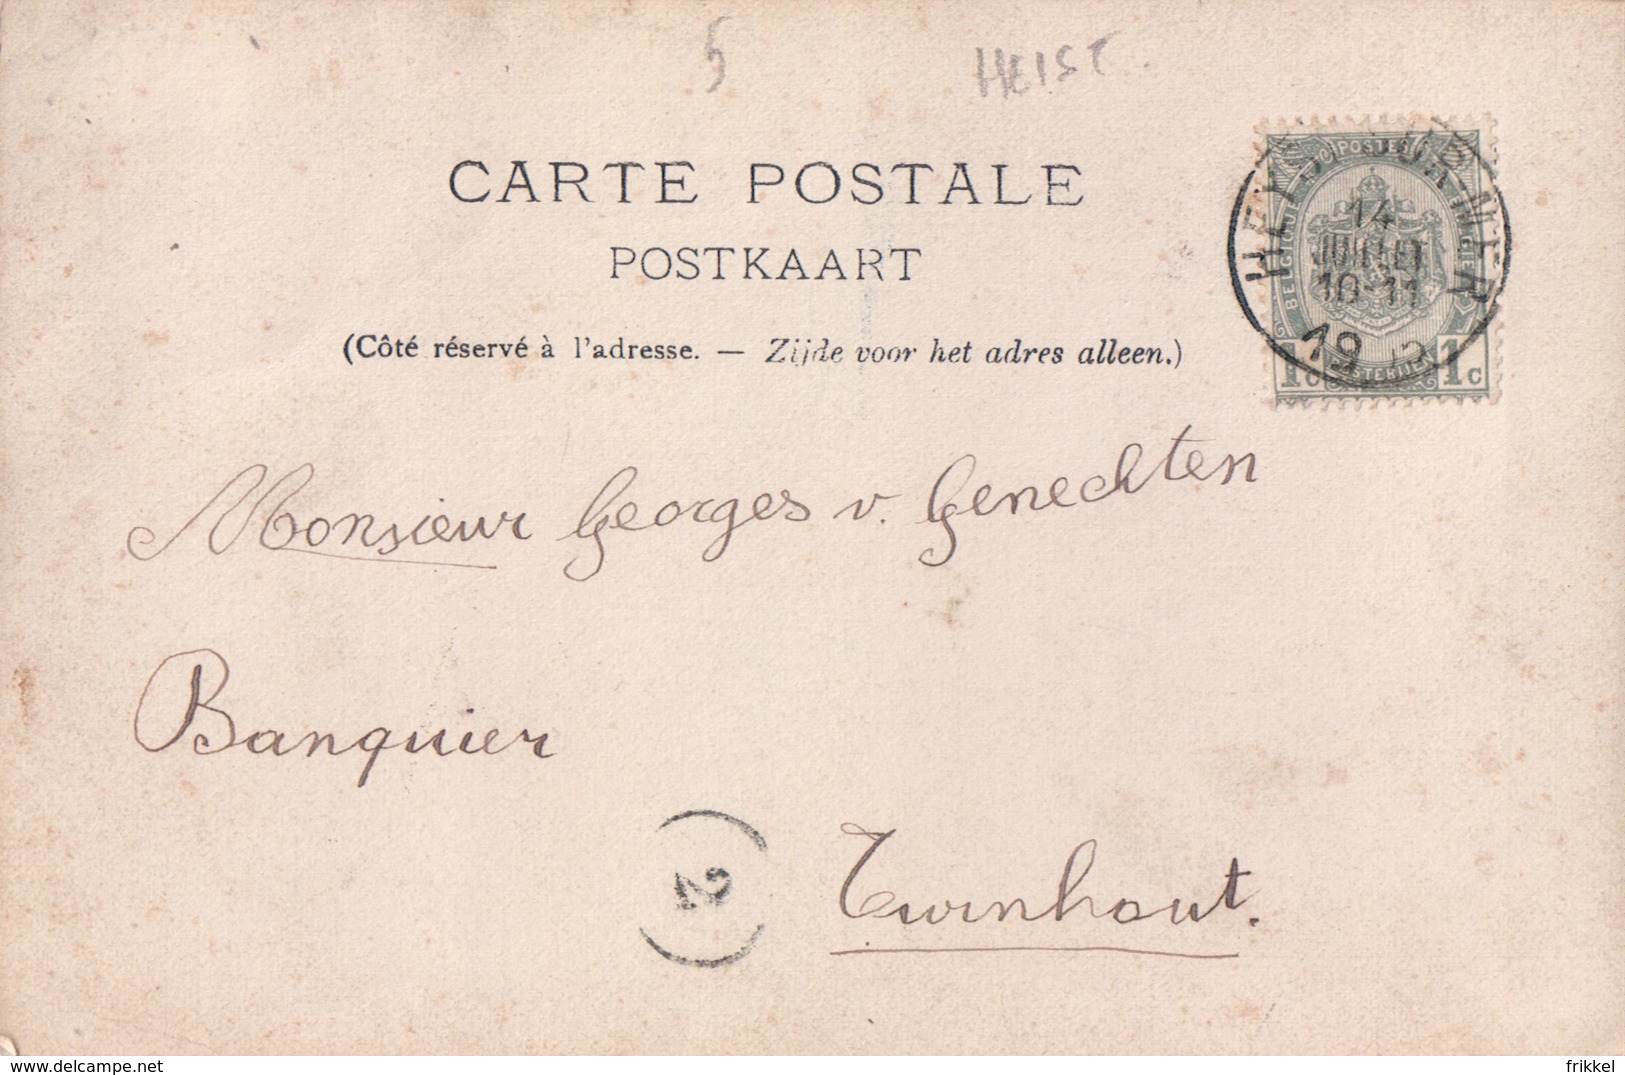 5
HEIST.
CARTE POSTALE
POSTKAART
(Côté réservé à l'adresse. — Zijde voor het adres alleen.)
POSTES
HEYST SUR MER
14
JUILLET
10-11
19
1c 1c
Monsieur Georges v. Genechten
Banquier
2
Turnhout.
delcampe.net
frikkel